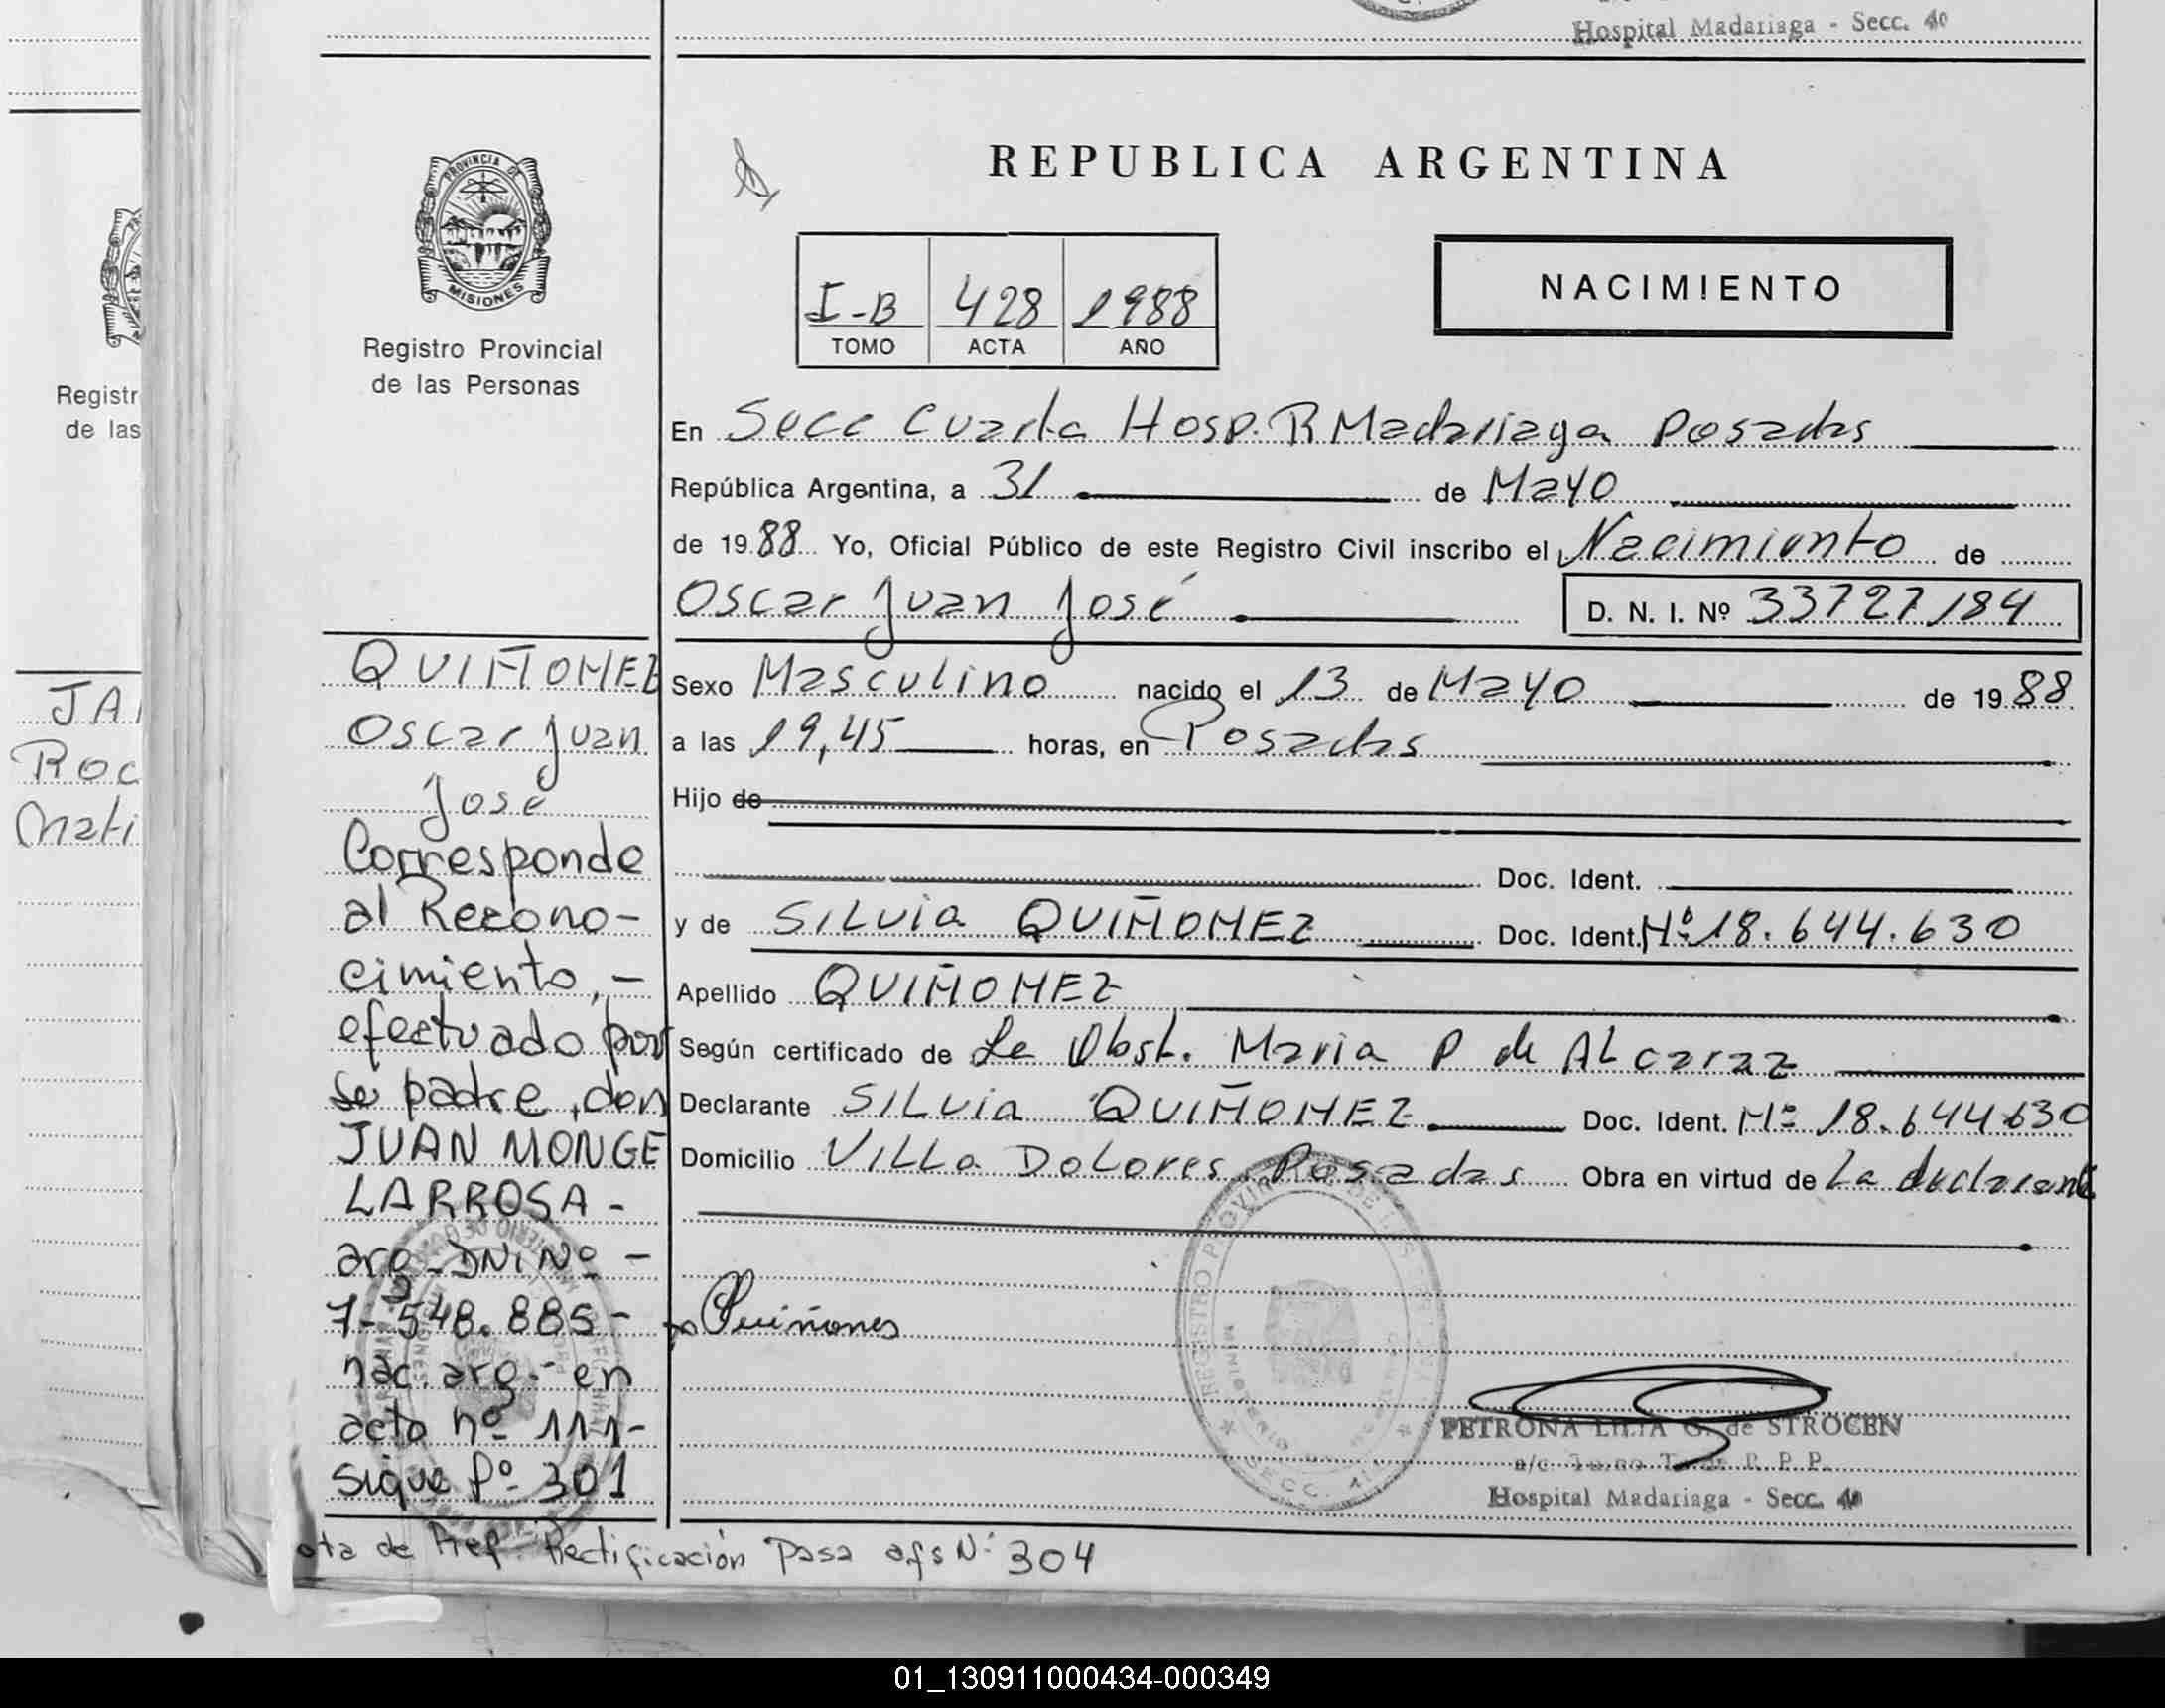 Hospital Madariaga - Secc. 4o
PROVINCIA DE
MISIONES
Registro Provincial
de las Personas
REPUBLICA ARGENTINA
NACIMIENTO
I-B 428 1988
TOMO ACTA AÑO
En Secc Cuarta Hosp. R Madariaga Posadas
República Argentina, a 31 de Mayo
de 1988 Yo, Oficial Público de este Registro Civil inscribo el Nacimiento de
Oscar Juan José D. N. I. Nº 33727184
Sexo Masculino nacido el 13 de Mayo de 1988
a las 19,45 horas, en Posadas
Hijo de
Doc. Ident.
y de SILVIA QUIÑONEZ Doc. Ident. Nº 18.644.630
Apellido QUIÑONEZ
Según certificado de La Obst. Maria P de ALcaraz
Declarante SILVIA QUIÑONEZ Doc. Ident. Nº 18.644630
Domicilio VILLA DOLores Posadas Obra en virtud de La declarante
Quiñones
PETRONA LILIA G. de STROCEN
R. P. P.
Hospital Madariaga - Secc. 4o
QUIÑONEZ
Oscar Juan
José
Corresponde
al Recono-
cimiento, -
efectuado por
su padre, don
JUAN MONGE
LARROSA -
arg - DNI Nº -
7-548.885-
nac. arg.- en
acta nº 111-
sigue fº 301
ota de Ref. Rectificación Pasa a fs Nº 304
Registr
de las
JA
ROC
Mati
01_130911000434-000349